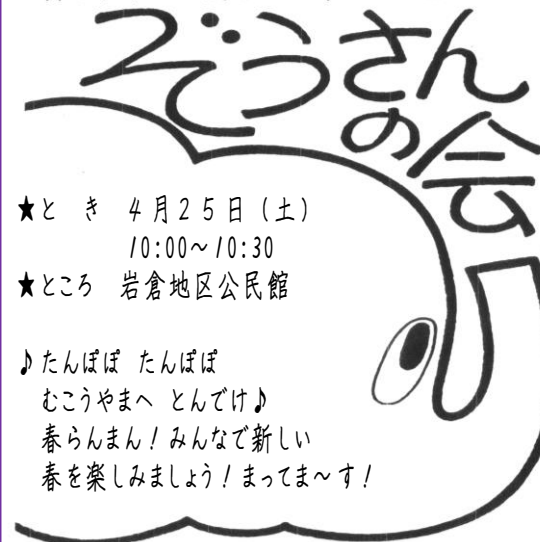 ぞうさん
の会
★と　き　４月２５日（土）
10:00～10:30
★ところ　岩倉地区公民館
♪たんぽぽ　たんぽぽ
むこうやまへ　とんでけ♪
春らんまん！みんなで新しい
春を楽しみましょう！まってま～す！